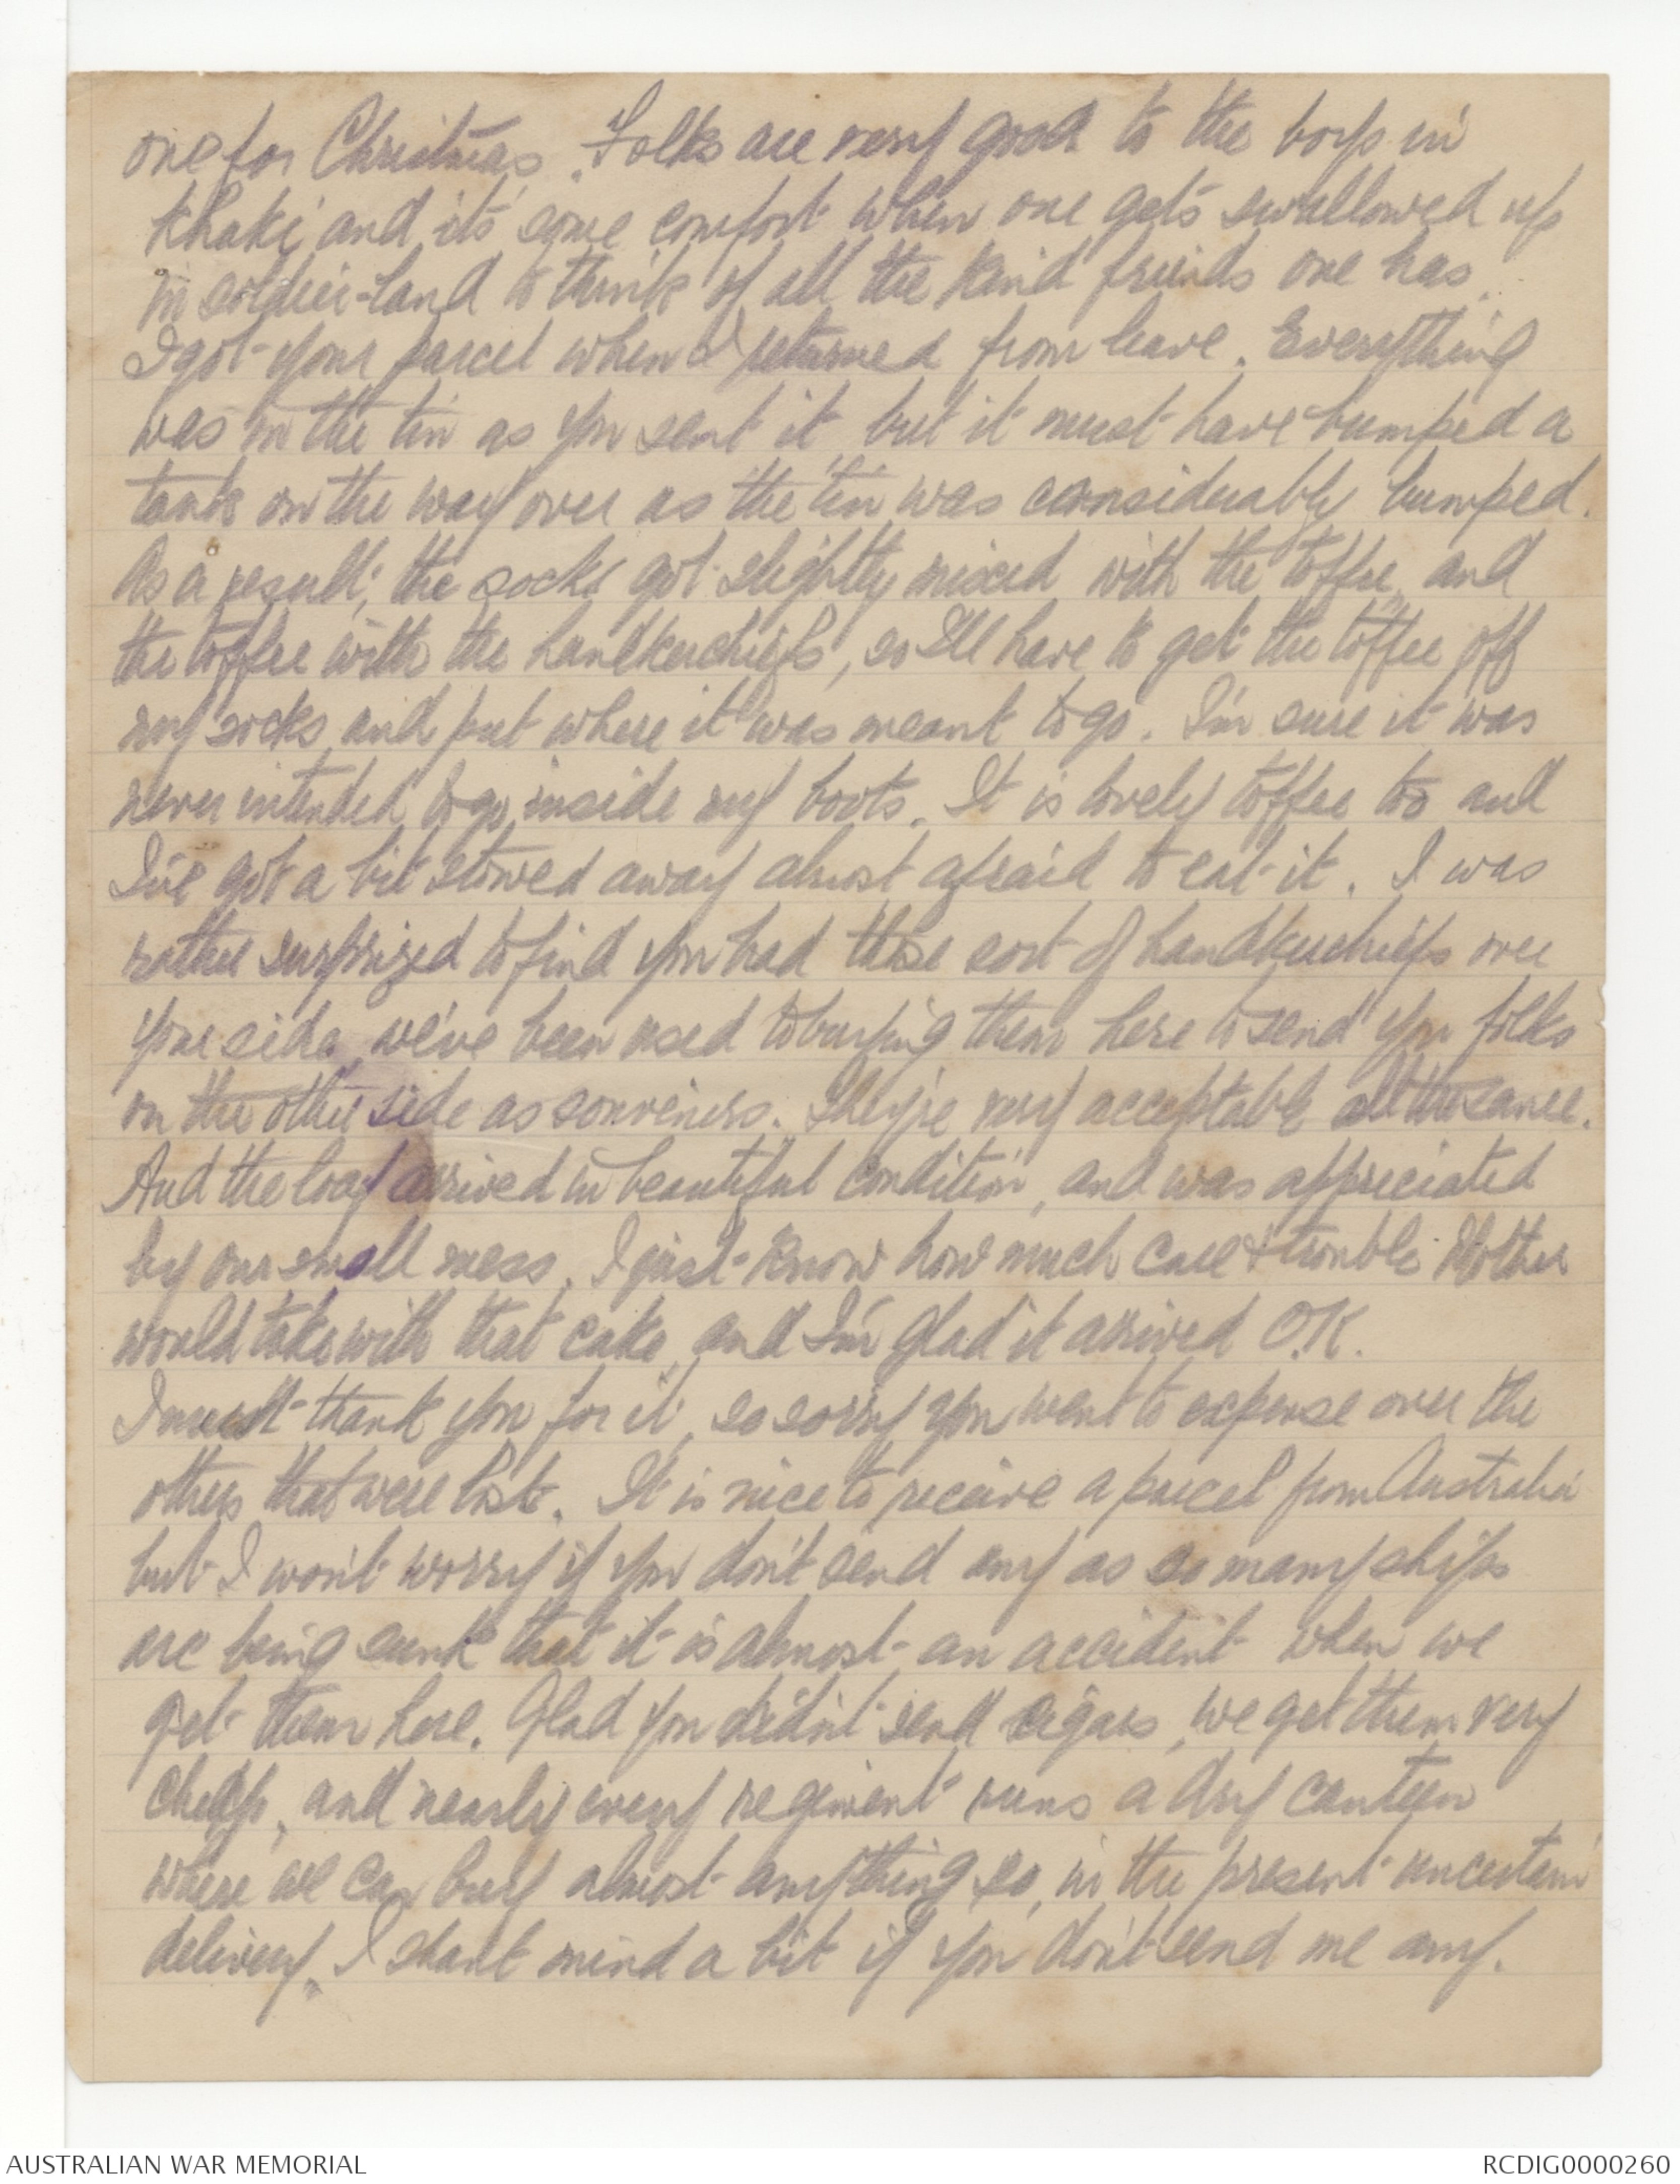 one for Christmas. Folks are very good to the boys in
khaki and its some comfort when one gets swallowed up
in soldier-land to think of all the kind friends one has.
I got your parcel when I returned from leave. Everything
was in the tin as you sent it, but it must have bumped a
tank on the way over as the tin was considerably bumped.
As a result, the socks got slightly mixed with the toffee, and
the toffee with the handkerchiefs, so I'll have to get the toffee off
my socks and put where it was meant to go. I'm sure it was
never intended to go inside my boots. It is lovely toffee too and
I've got a bit stowed away almost afraid to eat it. I was
rather surprized to find you had those sort of handkerchiefs over
your side, we've been used to buying them here to send you folks
on the other side as souvenirs. They're very acceptable all the same.
And the loaf arrived in beautiful condition, and was appreciated
by our small mess. I just know how much care & trouble Mother
would take with that cake, and I'm glad it arrived O.K.
I must thank you for it, so sorry you went to expense over the
others that were lost. It is nice to receive a parcel from Australia
but I won't worry if you don't send any as so many ships
are being sunk that it is almost an accident when we
get them here. Glad you didn't send cigars, we get them very
cheap, and nearly every regiment runs a dry canteen
where we can buy almost anything so, in the present uncertain
delivery, I shant mind a bit if you don't send me any.
AUSTRALIAN WAR MEMORIAL
RCDIG0000260